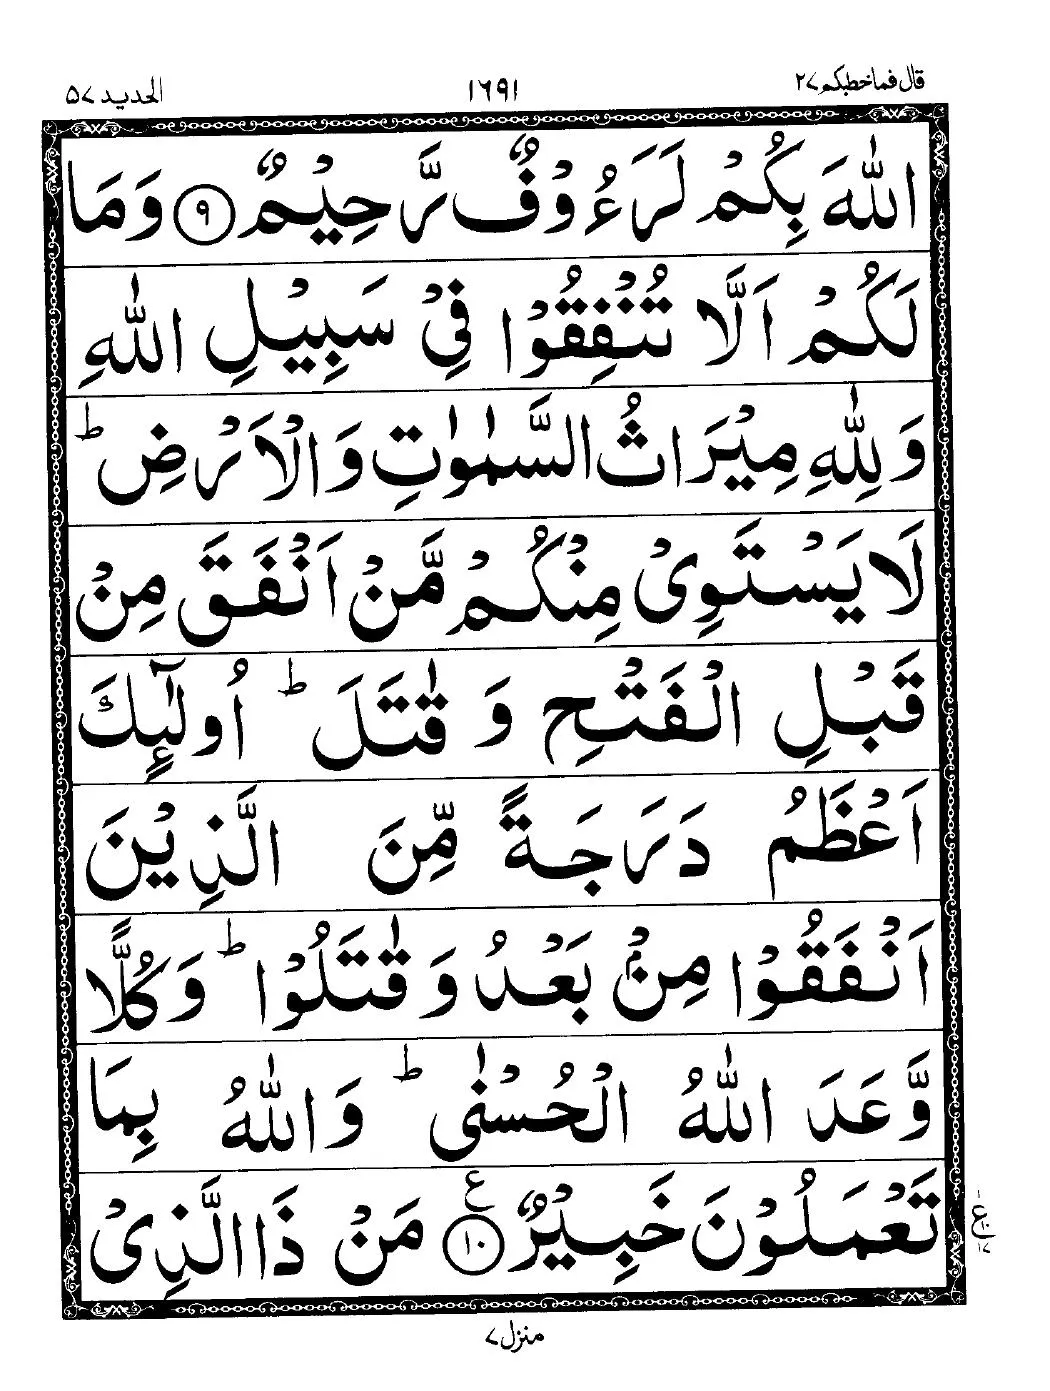 قال فماخطبكم ٢٧
١٦٩١
الحديد ٥٧
اللّٰهَ بِكُمْ لَرَءُوْفٌ رَّحِيْمٌ ٩ وَمَا
لَكُمْ اَلَّا تُنْفِقُوْا فِيْ سَبِيْلِ اللّٰهِ
وَلِلّٰهِ مِيْرَاثُ السَّمٰوٰتِ وَالْاَرْضِ ؕ
لَا يَسْتَوِيْ مِنْكُمْ مَّنْ اَنْفَقَ مِنْ
قَبْلِ الْفَتْحِ وَ قٰتَلَ ؕ اُولٰٓئِكَ
اَعْظَمُ دَرَجَةً مِّنَ الَّذِيْنَ
اَنْفَقُوْا مِنْۢ بَعْدُ وَ قٰتَلُوْا ؕ وَ كُلًّا
وَّعَدَ اللّٰهُ الْحُسْنٰى ؕ وَاللّٰهُ بِمَا
تَعْمَلُوْنَ خَبِيْرٌ ١٠ ع مَنْ ذَا الَّذِيْ
١
ع
١٠
١٧
منزل ٧